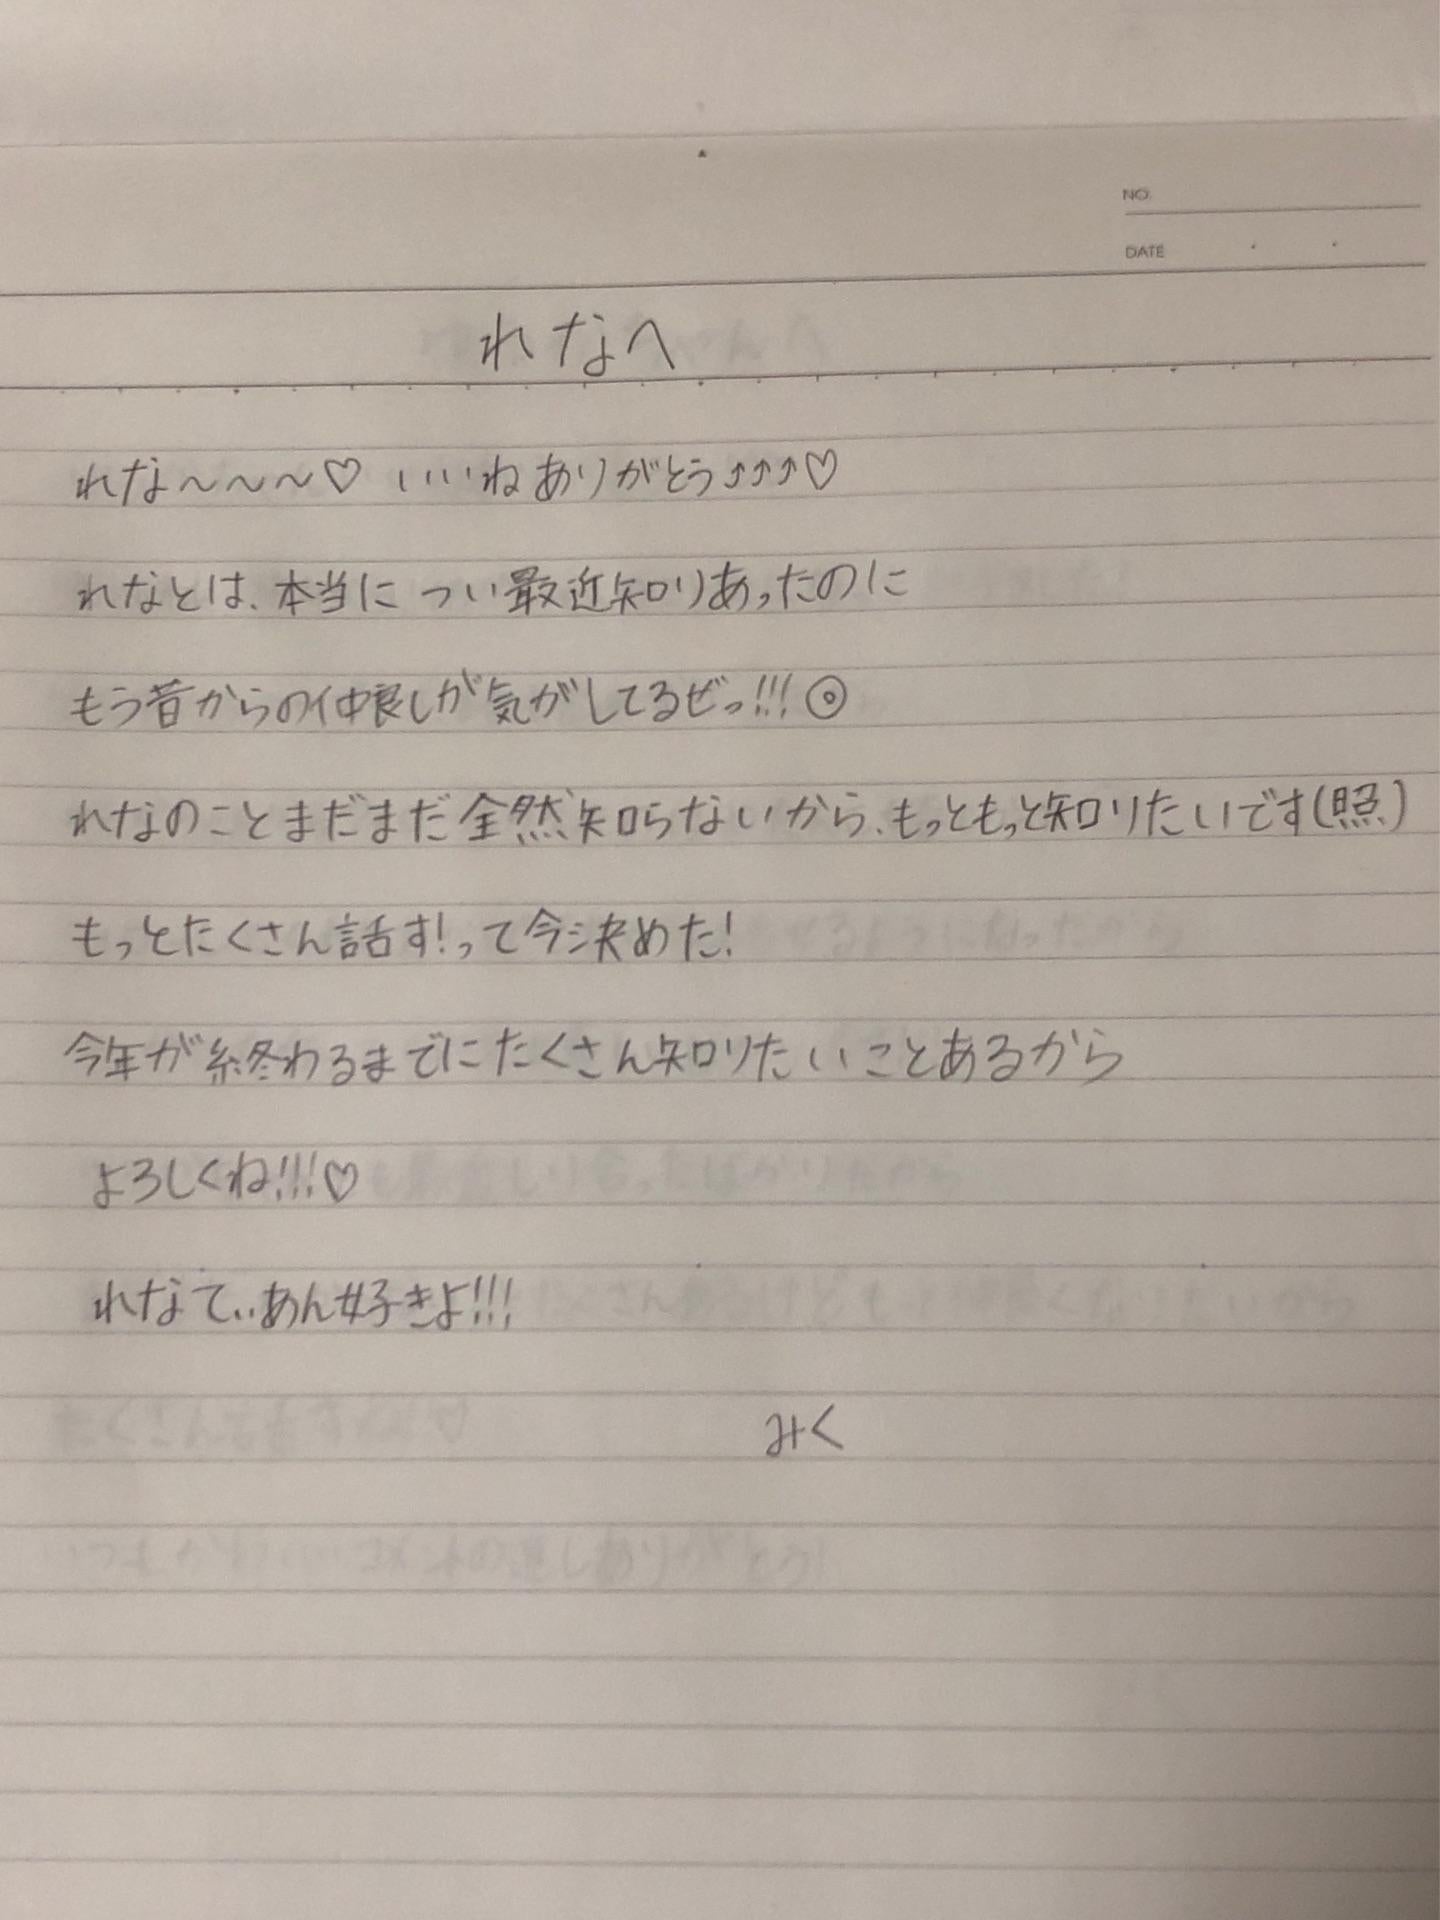 NO.
DATE
れなへ
れな〜〜〜♡ いいねありがとう⤴⤴⤴♡
れなとは、本当に つい最近知りあったのに
もう昔からの仲良しが気がしてるぜっ!!!◎
れなのことまだまだ全然知らないから、もっともっと知りたいです(照)
もっとたくさん話す!って今決めた!
今年が終わるまでにたくさん知りたいことあるから
よろしくね!!!♡
れなてぃあん好きよ!!!
みく